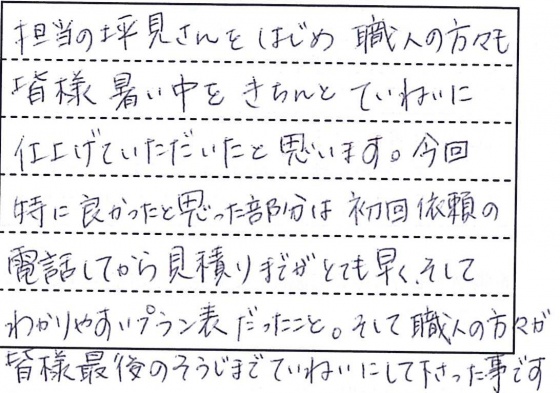 担当の坪見さんをはじめ 職人の方々も
皆様 暑い中を きちんと ていねいに
仕上げていただいたと思います。今回
特に良かったと思った部分は 初回依頼の
電話してから見積りまでがとても早く、そして
わかりやすいプラン表だったこと。そして職人の方々が
皆様最後のそうじまでていねいにして下さった事です